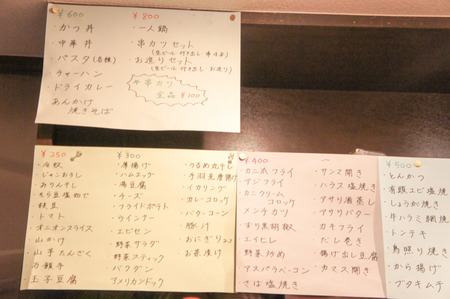 ¥600
・かつ丼
・中華丼
・パスタ(各種)
・チャーハン
・ドライカレー
・あんかけ
焼きそば
¥800
・一人鍋
・串カツセット
(生ビール 付き出し 串4本)
・お造りセット
(生ビール 付き出し お造り)
串カツ
全品 ¥100
¥250
・冷奴
・じゃこおろし
・みりん干し
・もろ豆塩ゆで
・枝豆
・トマト
・オニオンスライス
・山かけ
・山芋たんざく
・玉子豆腐
¥300
・厚揚げ
・ハムエッグ
・湯豆腐
・チーズ
・フライドポテト
・ウインナー
・エビセン
・野菜サラダ
・野菜スティック
・バクダン
・アメリカンドック
・うるめ丸干し
・手羽先唐揚げ
・イカリング
・カレーコロッケ
・バターコーン
・豚汁
・おにぎり2コ
・お茶漬け
¥400
・カニ爪フライ
・アジフライ
・カニクリーム
コロッケ
・メンチカツ
・すり黒胡椒
・エイヒレ
・野菜炒め
・アスパラベーコン
・さば塩焼き
・サンマ開き
・ハラス塩焼き
・アサリ酒蒸し
・アサリバター
・カキフライ
・だし巻き
・揚げ出し豆腐
・カマス開き
¥500
・とんかつ
・有頭エビ塩焼
・しょうが焼き
・牛ハラミ網焼
・トンテキ
・鳥照り焼き
・から揚げ
・ブタキムチ